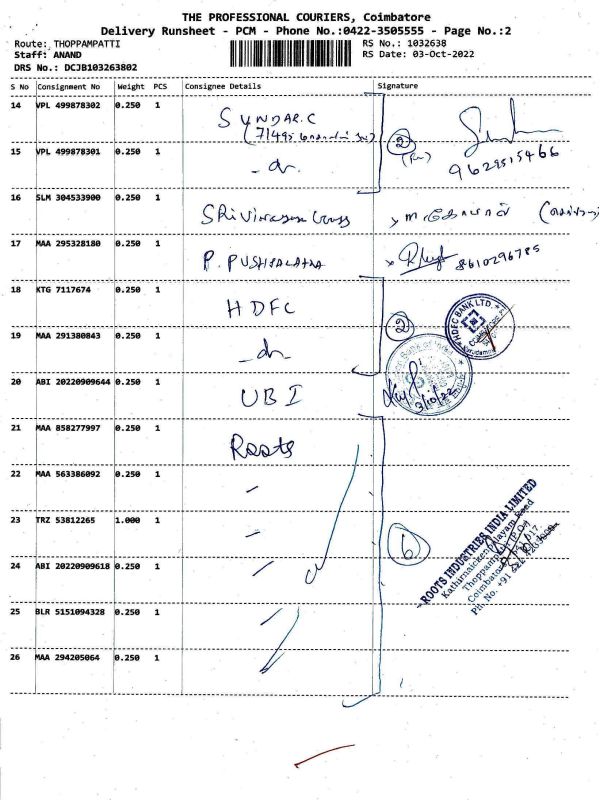 THE PROFESSIONAL COURIERS, Coimbatore
Delivery Runsheet - PCM - Phone No.:0422-3505555 - Page No.:2
Route: THOPPAMPATTI RS No.: 1032638
Staff: ANAND RS Date: 03-Oct-2022
DRS No.: DCJB103263802
S No Consignment No Weight PCS Consignee Details Signature
14 VPL 499878302 0.250 1 SUNDAR.C
15 VPL 499878301 0.250 1 -do- 2 9629515466
16 SLM 304533900 0.250 1
17 MAA 295328180 0.250 1 P. PUSHPALATHA 8610296785
18 KTG 7117674 0.250 1 HDFC
HDFC BANK LTD.
19 MAA 291380843 0.250 1 -do- 2
20 ABI 20220909644 0.250 1 UBI 3/10/22
21 MAA 858277997 0.250 1 Roots
22 MAA 563386092 0.250 1 "
23 TRZ 53812265 1.000 1 " 6
24 ABI 20220909618 0.250 1 "
25 BLR 5151094328 0.250 1 "
26 MAA 294205064 0.250 1 "
ROOTS INDUSTRIES INDIA LIMITED
Thoppampatti (P.O)
Coimbatore
Ph. No. +91